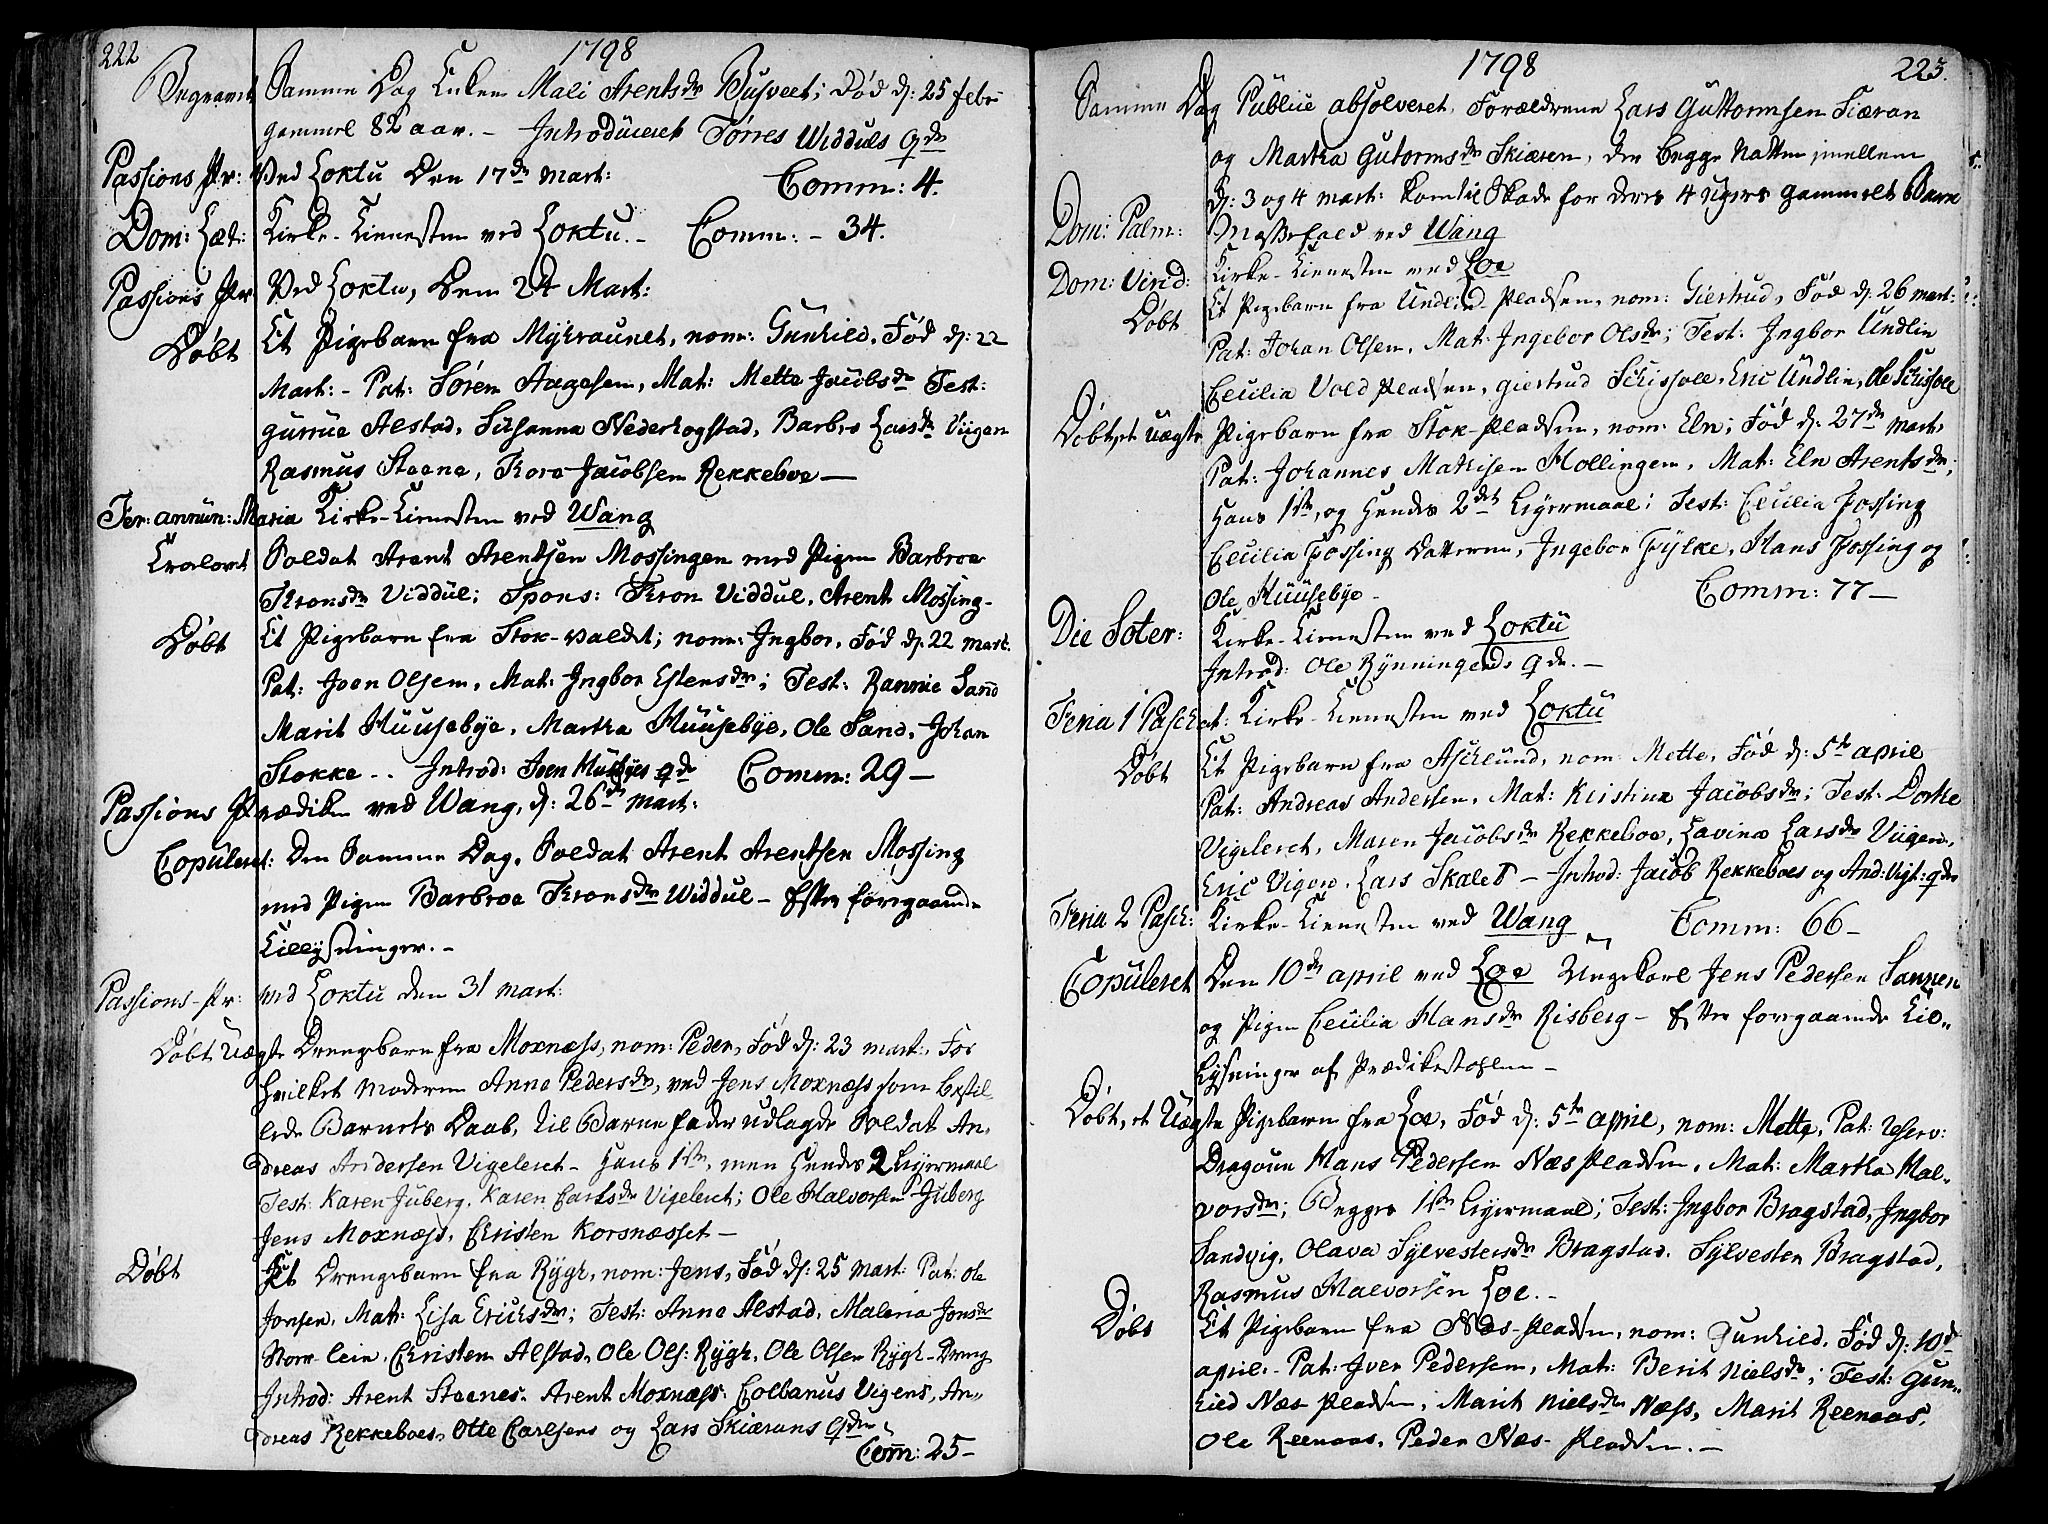 222
1798
Begravet Samme Dag Enken Mali Arentsdr Busveet; død d: 25 febr
gammel 82 aar. - Introduceret Torres Widduls qde
Passions Pr: Ved Loktu den 17de Mart: Comm: 4.
Dom: Læt: Kirke-Tienesten ved Loktu. - Comm: - 34.
Passions Pr Ved Loktu, den 24 Mart:
Døbt Et Pigebarn fra Mykraunet, nom: Gunhild. Fød d: 22
Mart: - Pat: Søren Aagesen, Mat: Mette Jacobsdr Test:
gurrue Alstad, Susanna Nederhogstad, Barbro Larsdr Viigen
Rasmus Steene, Thore Jacobsen Rekkeboe —
Fer: annun: Maria Kirke-Tienesten ved Wang
Trolovet Soldat Arent Arentsen Mossingen med Pigen Barbroe
Thronsdr Viddul; Spons: Thron Viddul, Arent Mossing-
Døbt Et Pigebarn fra Stok-valdet; nom: Ingbor, Fød d: 22 mart.
Pat: Joen Olsen, Mat: Ingbor Estensdr; Test: Rannie Sand
Marit Huusebye, Martha Huusebye, Ole Sand, Johan
Stokke .. Introd: Iven Husbyes qde Comm: 29 —
Passions Prædiken ved Wang, d: 26de mart:
Copuleret: Den Samme Dag, Soldat Arent Arentsen Mossing
med Pigen Barbroe Thronsdr Widdul — Efter foregaaende
Tillysninger. -
Passions-Pr: ved Loktu den 31 mart:
Døbt Uægte Drengebarn fra Moxnæss, nom: Peder, Fød d: 23 mart:, For
hvilket moderen Anne Pedersdr, ved Jens Moxnæss som bestil-
lede Barnets Daab, til Barnefader udlagde Soldat An-
dreas Andersen Vigeleret - Hans 1ste, men Hendes 2 Leyermaal
Test: Karen Juberg, Karen Carlsdr Vigeleret; Ole Halvorsen Juberg
Jens Moxnæss, Christen Korsnæsset —
Døbt Et Drengebarn fra Rygh, nom: Jens, Fød d: 25 Mart: Pat: Ole
Jonsen, Mat: Lisa Ericksdr; Test: Anne Alstad, Malena Jonsdr
Norn-lein, Christen Alstad, Ole Ols: Rygh, Ole Olsen Rygh-Dreng
Introd: Arent Steenes, Arent Moxnæss. Colbanus Vigens, An-
dreas Rekkeboes, Otte Carlsens og Lars Skiærans qder
Com: 25-
1798
223.
Samme Dag Publice absolveret, Forældrene Lars Guttormsen Fiæran
og Martha Gutormsdr Skiæren, der begge Natten jmellem
d: 3 og 4 mart: kom til Skade for deres 4 Ugers gammelt Barn
Dom: Palm: Messefald ved Wang
Dom: Virid: Kirke-Tienesten ved Loe
Døbt Et Pigebarn fra Undlid-Pladsen, nom: Giertrud, Fød d: 26 mart:
Pat: Johan Olsen, Mat: Ingebor Olsdr; Test: Ingbor Undlin
Cecilia Vold Pladsen, giertrud Schissole, Eric Undlin, Ole Schissole
Døbt, et Uægte Pigebarn fra Stok-Pladsen, nom: Eln; Fød d: 27de mart:
Pat: Johannes Mathisen Hollingen, Mat: Eln Arentsdr;
Hans 1ste, og Hendes 2det Leyermaal; Test: Cecilia Fossing
Cecilia Fossing Datteren, Ingebor Fylke, Hans Fossing og
Ole Huusebye - Comm: 77 —
Die Soter: Kirke-Tienesten ved Loktu
Introd: Ole Rynningens qde. —
Feria 1 Paschat: Kirke-Tienesten ved Loktu
Døbt Et Pigebarn fra Aschlund, nom: Mette, Fød d: 5te april
Pat: Andreas Andersen, Mat: Kirstina Jacobsdr; Test: Dorthe
Vigeleret, Maren Jacobsdr Rekkeboe, Lavina Larsdr Viigen,
Eric Vigen, Lars Skalet — Introd: Jacob Rekkeboes og And: Vigl: qder
Feria 2 Pasch: Kirke-Tienesten ved Wang Comm: 66 -
Copuleret Den 10de april ved Loe Ungekarl Jens Pedersen Sannen
og Pigen Cecilia Hansdr Risberg - Efter foregaaende Til-
lysninger af Prædikestolen -
Døbt, et Uægte Pigebarn fra Loe, Fød d: 5te april, nom: Mette, Pat: Reserv:
Dragoun Hans Pedersen Næs Pladsen, Mat: Martha Hal-
vorsdr; Begges 1ste Leyermaal; Test: Ingbor Bragstad, Ingbor
Sandvig, Olava Sylvestersdr Bragstad, Sylvester Bragstad,
Rasmus Halvorsen Loe. -
Døbt Et Pigebarn fra Næs-Pladsen, nom: Gunhild. Fød d: 10de
april. - Pat: Iver Pedersen, Mat: Berit Nielsdr; Test: Gun-
hild Næs Pladsen, Marit Nielsdr Næss, Marit Reenaas,
Ole Reenaas, Peder Næs-Pladsen. —